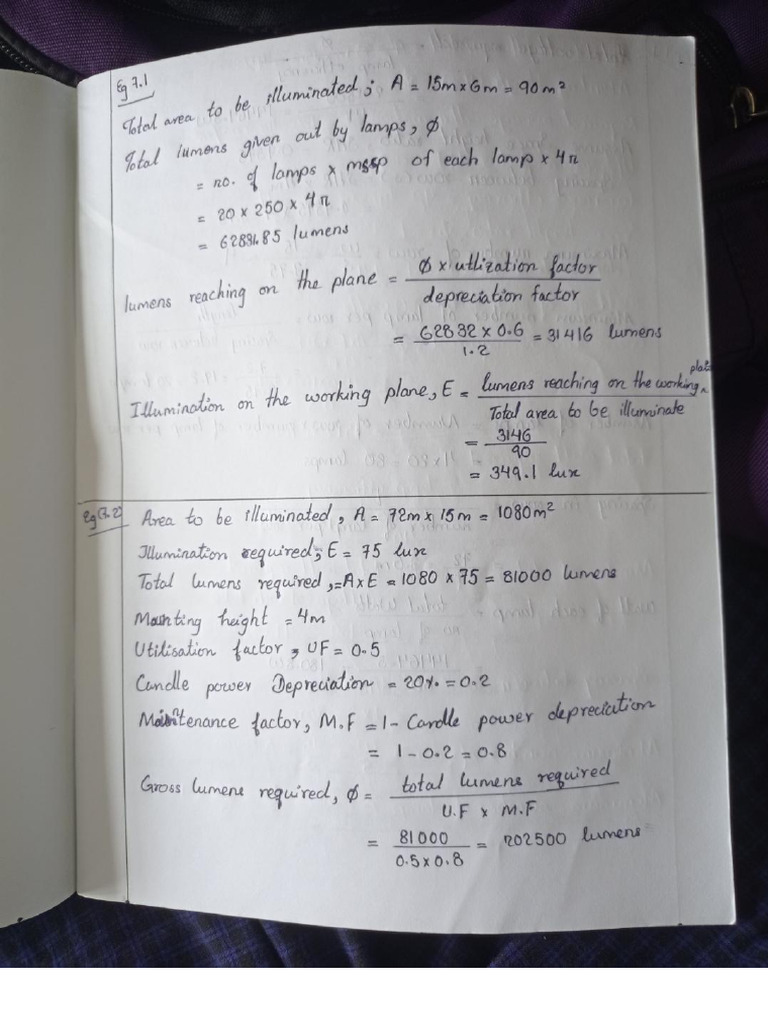 Eg 7.1
Total area to be illuminated; A = 15m x 6m = 90m²
Total lumens given out by lamps, Φ
= no. of lamps x mscp of each lamp x 4π
= 20 x 250 x 4π
= 62831.85 lumens
lumens reaching on the plane = Φ x utlization factor / depreciation factor
= 62832 x 0.6 / 1.2 = 31416 lumens
Illumination on the working plane, E = lumens reaching on the working plate / Total area to be illuminate
= 3146 / 90
= 349.1 lux
Eg 7.2 Area to be illuminated, A = 72m x 15m = 1080m²
Illumination required, E = 75 lux
Total lumens required, = A x E = 1080 x 75 = 81000 lumens
Mounting height = 4m
Utilisation factor, UF = 0.5
Candle power Depreciation = 20% = 0.2
Maintenance factor, M.F = 1 - Candle power depreciation
= 1 - 0.2 = 0.8
Gross lumens required, Φ = total lumens required / U.F x M.F
= 81000 / 0.5 x 0.8 = 202500 lumens